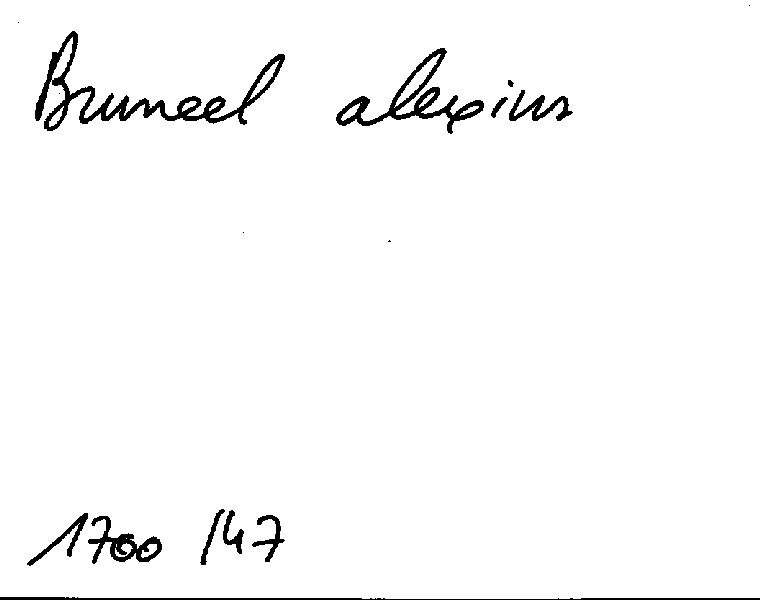 Bruneel alexius
1700 /47